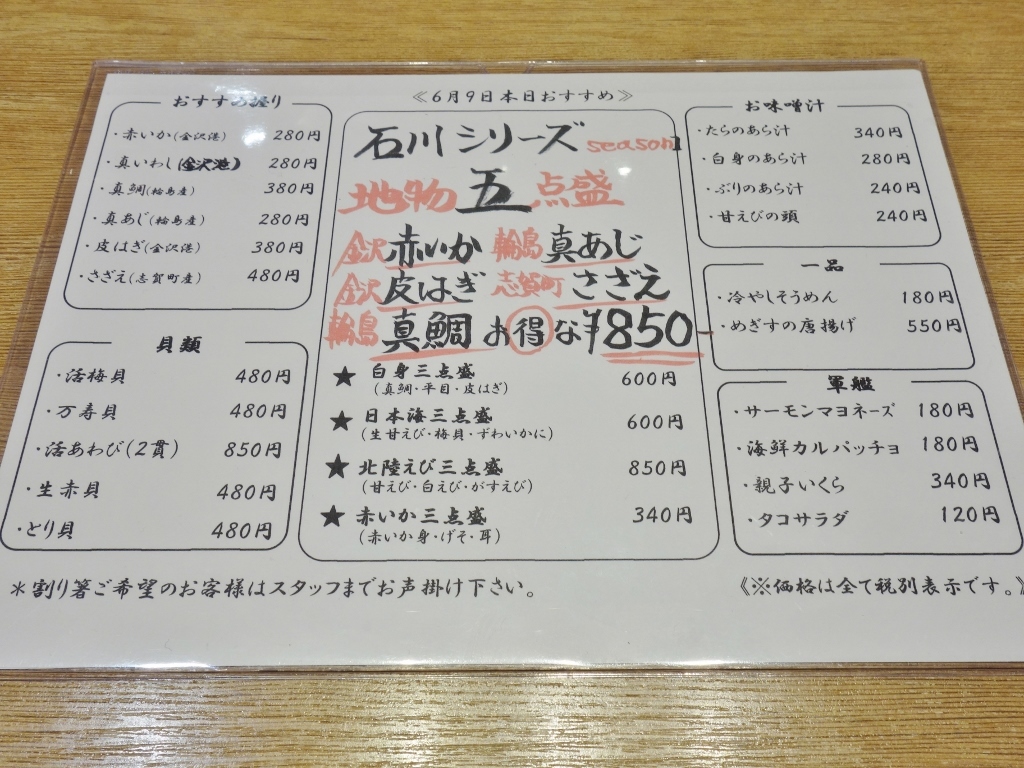 《6月9日本日おすすめ》
おすすめ握り
・赤いか(金沢港) 280円
・真いわし(金沢港) 280円
・真鯛(輪島産) 380円
・真あじ(輪島産) 280円
・皮はぎ(金沢港) 380円
・さざえ(志賀町産) 480円
貝類
・活梅貝 480円
・万寿貝 480円
・活あわび(2貫) 850円
・生赤貝 480円
・とり貝 480円
石川シリーズ season1
地物五点盛
金沢赤いか 輪島真あじ
金沢皮はぎ 志賀町さざえ
輪島真鯛 お得な¥850-
★ 白身三点盛 600円
(真鯛・平目・皮はぎ)
★ 日本海三点盛 600円
(生甘えび・梅貝・ずわいかに)
★ 北陸えび三点盛 850円
(甘えび・白えび・がすえび)
★ 赤いか三点盛 340円
(赤いか身・げそ・耳)
お味噌汁
・たらのあら汁 340円
・白身のあら汁 280円
・ぶりのあら汁 240円
・甘えびの頭 240円
一品
・冷やしそうめん 180円
・めぎすの唐揚げ 550円
軍艦
・サーモンマヨネーズ 180円
・海鮮カルパッチョ 180円
・親子いくら 340円
・タコサラダ 120円
*割り箸ご希望のお客様はスタッフまでお声掛け下さい。
《※価格は全て税別表示です。》